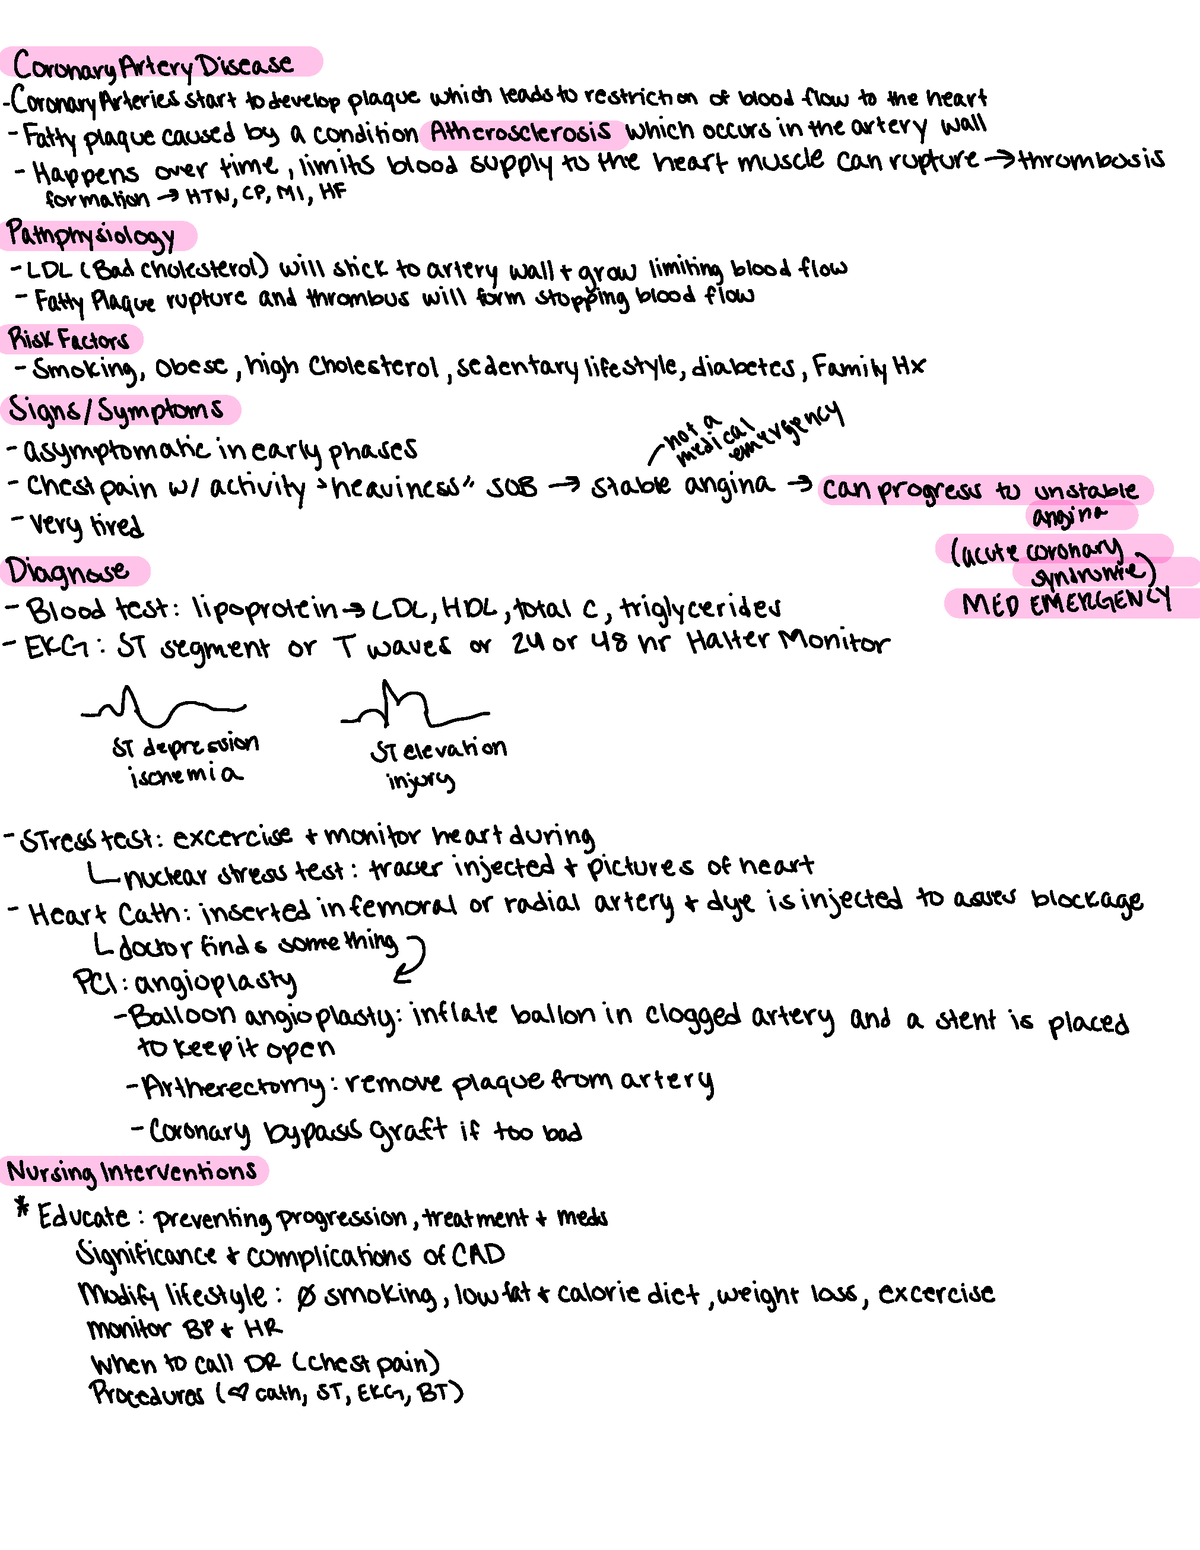 Coronary Artery Disease
- Coronary Arteries start to develop plaque which leads to restriction of blood flow to the heart
- Fatty plaque caused by a condition Atherosclerosis which occurs in the artery wall
- Happens over time, limits blood supply to the heart muscle can rupture → thrombosis
formation → HTN, CP, MI, HF
Pathphysiology
- LDL (Bad cholesterol) will stick to artery wall + grow limiting blood flow
- Fatty Plaque rupture and thrombus will form stopping blood flow
Risk Factors
- Smoking, Obese, high Cholesterol, sedentary lifestyle, diabetes, Family Hx
Signs/Symptoms
- asymptomatic in early phases
not a
medical
emergency
- Chest pain w/ activity "heaviness" SOB → stable angina → can progress to unstable
angina
- Very tired
(acute coronary
syndrome)
MED EMERGENCY
Diagnose
- Blood test: lipoprotein → LDL, HDL, total C, triglycerides
- EKG: ST segment or T waves or 24 or 48 hr Halter Monitor
ST depression
ischemia
ST elevation
injury
- STress test: excercise + monitor heart during
nuclear stress test: tracer injected + pictures of heart
- Heart Cath: inserted in femoral or radial artery + dye is injected to asses blockage
doctor finds something
PCI: angioplasty
- Balloon angioplasty: inflate ballon in clogged artery and a stent is placed
to keep it open
- Artherectomy: remove plaque from artery
- Coronary bypass graft if too bad
Nursing Interventions
* Educate: preventing progression, treatment + meds
Significance + complications of CAD
Modify lifestyle: Ø smoking, low fat + calorie diet, weight loss, excercise
monitor BP + HR
When to call DR (chest pain)
Procedures (♡ cath, ST, EKG, BT)